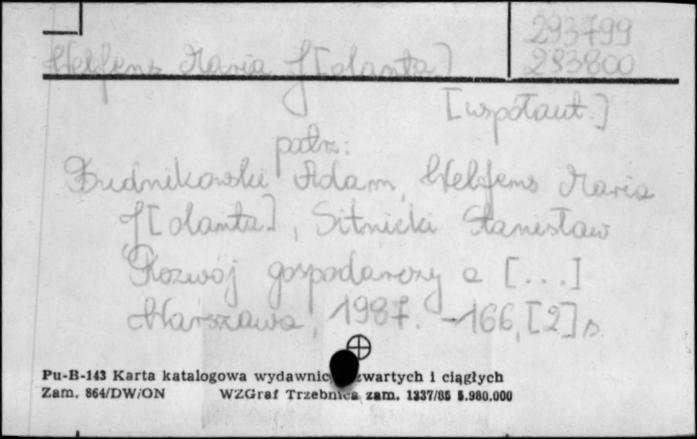 293799
293800
Welfens Maria J[olanta]
[współaut.]
patrz:
Budnikowski Adam, Welfens Maria
J[olanta], Sitnicki Stanisław
Rozwój gospodarczy a [...]
Warszawa, 1987. - 166, [2] s.
Pu-B-143 Karta katalogowa wydawnic zwartych i ciągłych
Zam. 864/DW/ON WZGraf Trzebnica zam. 1337/85 5.980.000